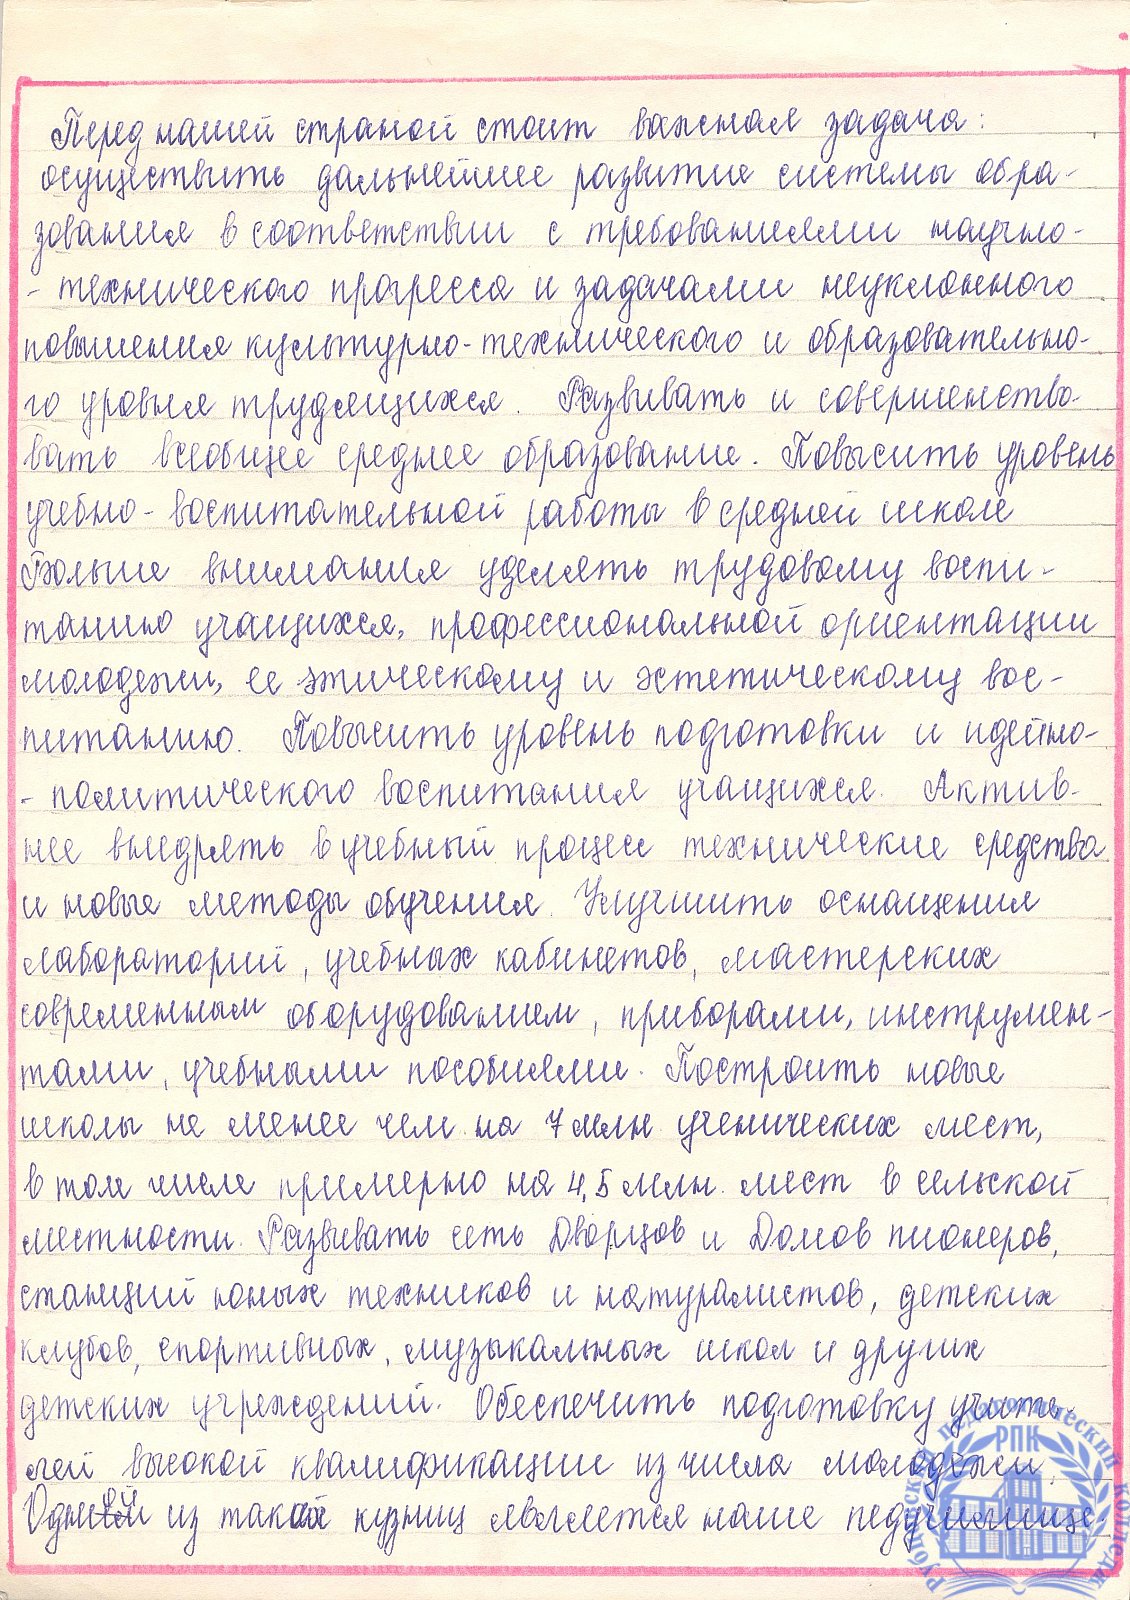 Перед нашей страной стоит важная задача:
осуществить дальнейшее развитие системы обра-
зования в соответствии с требованиями научно-
- технического прогресса и задачами неуклонного
повышения культурно-технического и образовательно-
го уровня трудящихся. Развивать и совершенство-
вать всеобщее среднее образование. Повысить уровень
учебно-воспитательной работы в средней школе
Больше внимания уделять трудовому воспи-
танию учащихся, профессиональной ориентации
молодежи, ее этическому и эстетическому вос-
питанию. Повысить уровень подготовки и идейно-
- политического воспитания учащихся. Актив-
нее внедрять в учебный процесс технические средства
и новые методы обучения. Улучшить оснащения
лабораторий, учебных кабинетов, мастерских
современным оборудованием, приборами, инструмен-
тами, учебными пособиями. Построить новые
школы не менее чем на 7 млн ученических мест,
в том числе примерно на 4,5 млн. мест в сельской
местности. Развивать сеть Дворцов и Домов пионеров,
станций юных техников и натуралистов, детских
клубов, спортивных, музыкальных школ и других
детских учреждений. Обеспечить подготовку учите-
лей высокой квалификации из числа молодежи.
Одной из таких кузниц является наше педучилище.
Рубцовский педагогический колледж
РПК